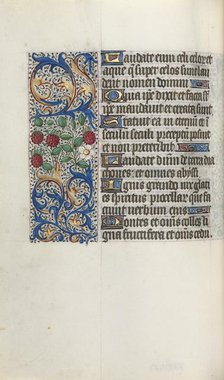 Laudate eum celi celor et
aque q̄ super celos sunt lau
dent nomen domini
Quia ip̄e dixit et facta sūt
ip̄e mandauit et creata sunt
Statuit ea in eternū et in
seculū seculi preceptū posuit
et non preteribit
Laudate dn̄m de terra dra
chones et omnes abyssi
Ignis grando nix glacies
spiritus procellar que fa
ciunt verbum eius
Montes et omnes colles li
gna fructifera et om̄s cedri